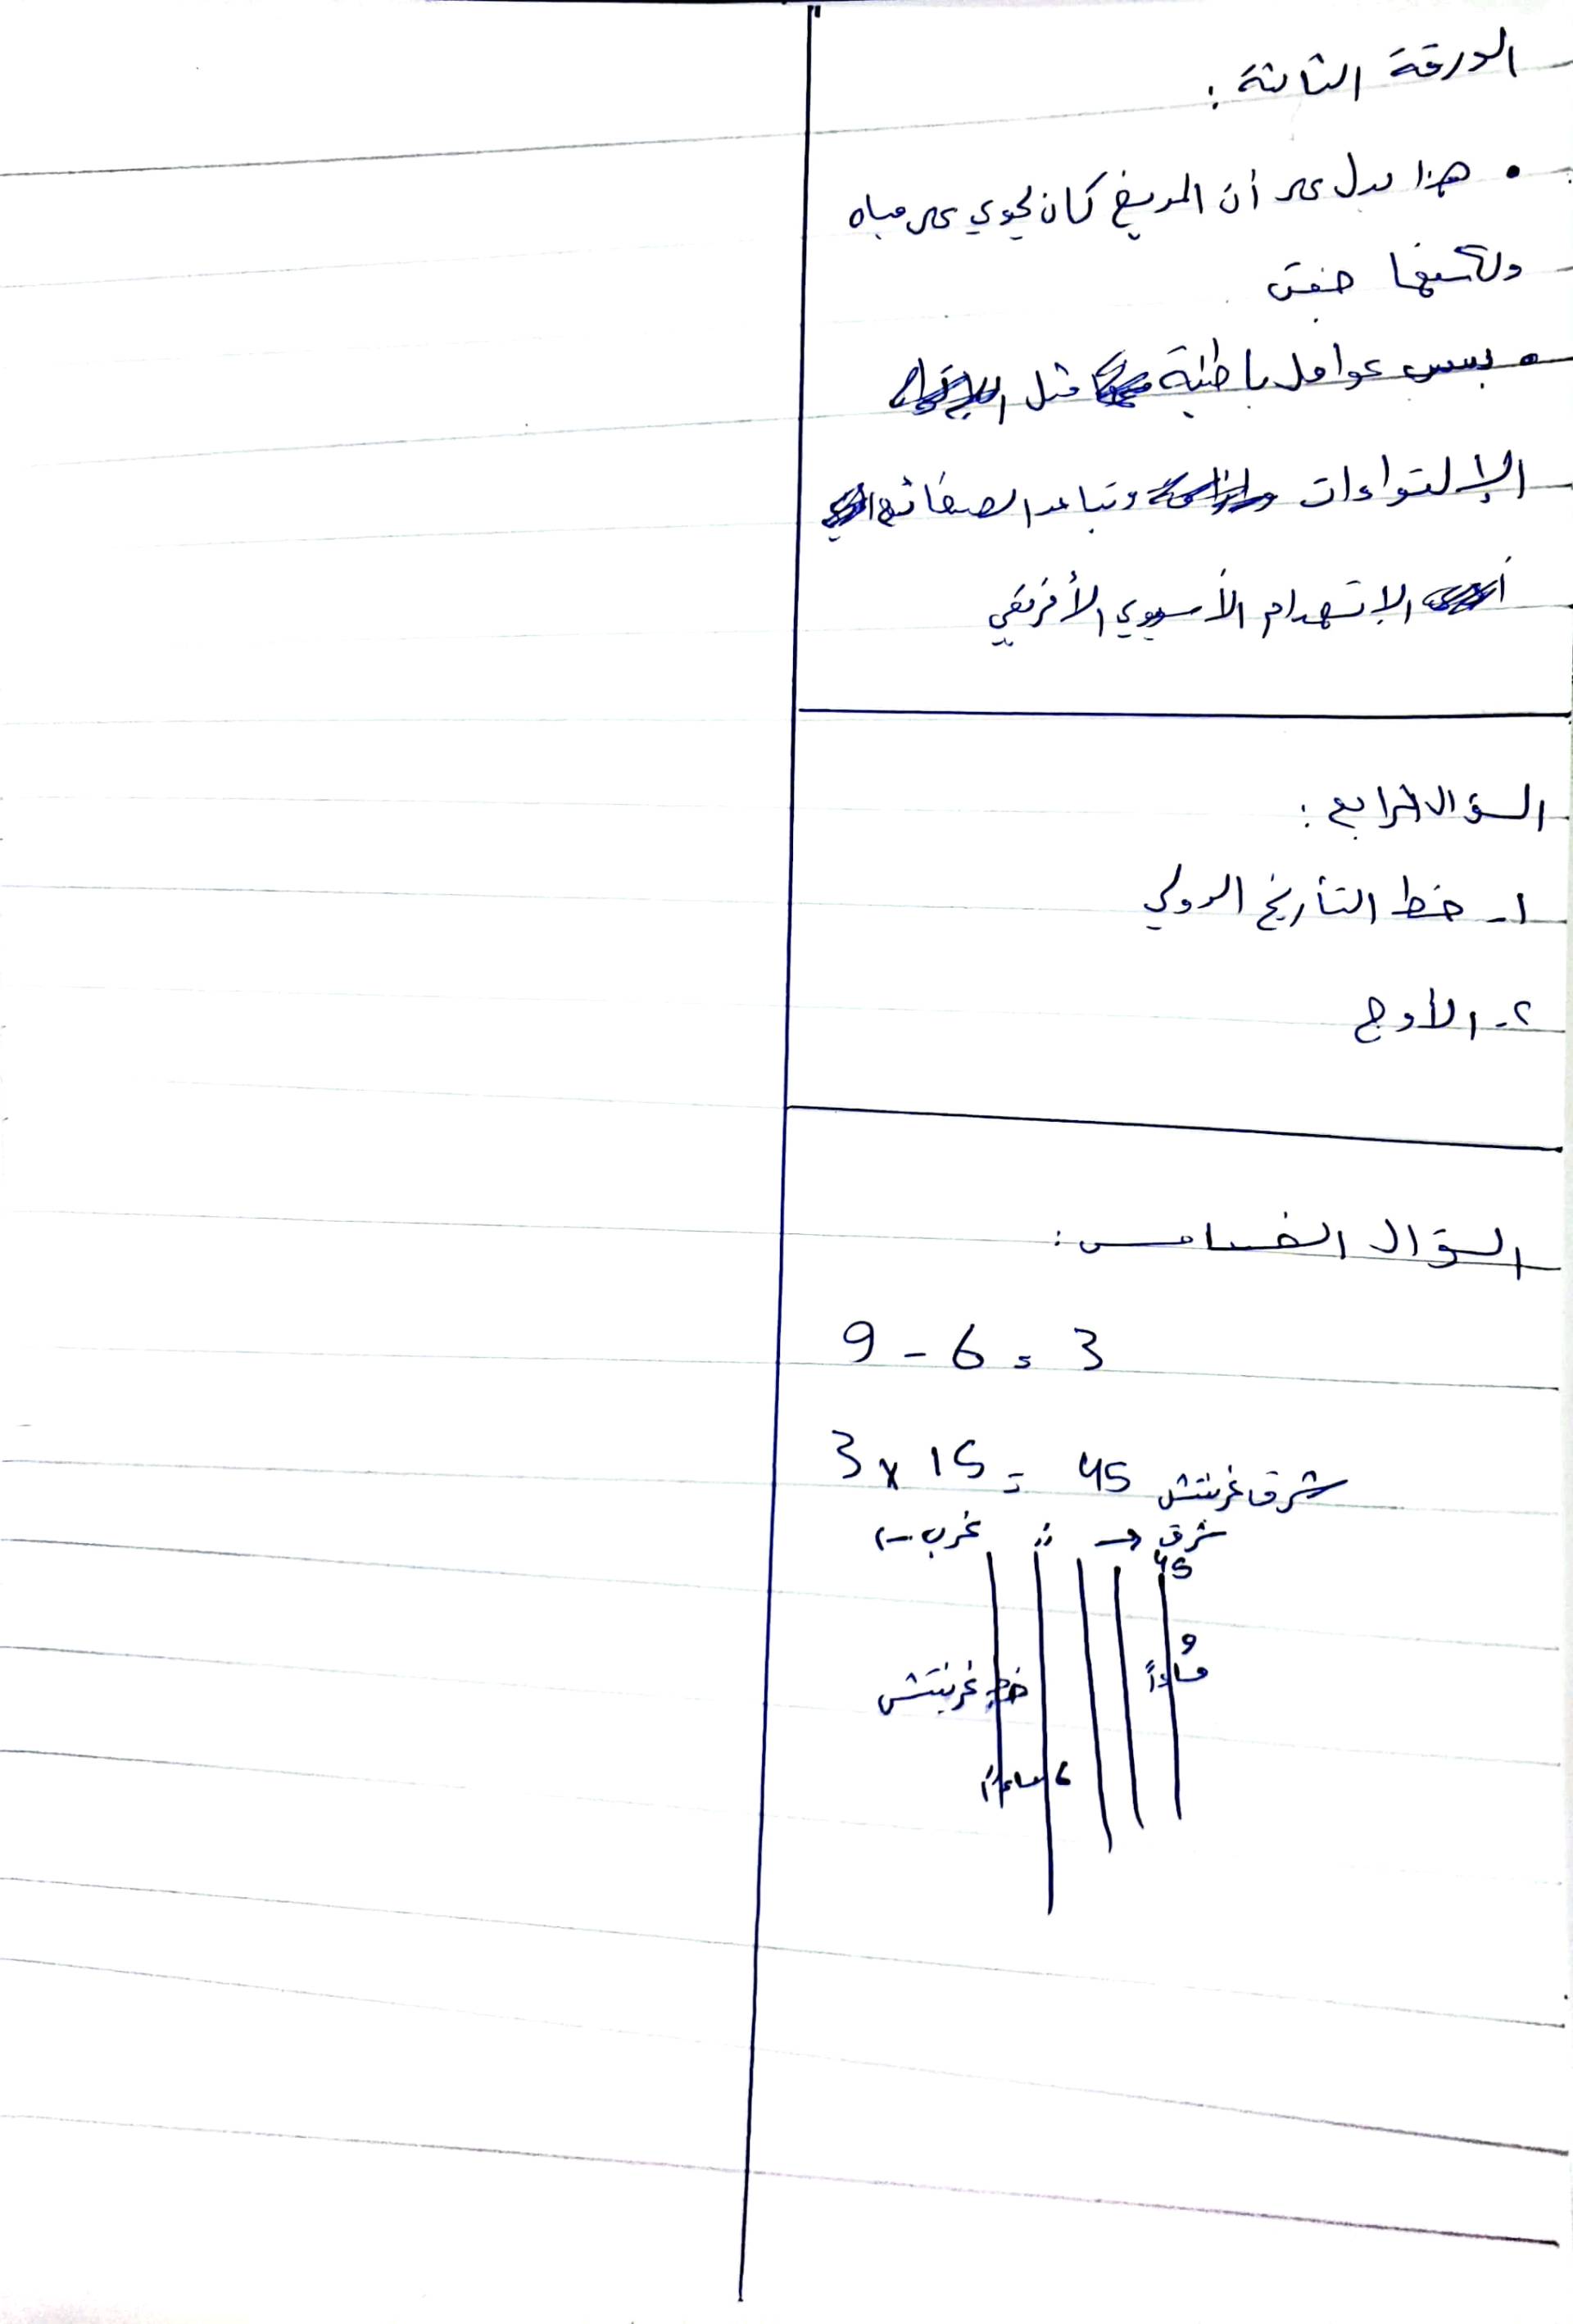 الورقة الثالثة :
• هذا يدل على أن المريخ كان يحوي على مياه
ولكنها جفت
• بسبب عوامل باطنية مثل
الإلتواءات وتباعد الصفائح
الإنهدام الأسيوي الأفريقي
السؤال الرابع :
١- خط التأريخ الدولي
٢- الأوج
السؤال الخامس :
9 - 6 = 3
3 x 15 = 45 شرق غرينتش
غرب شرق
45
9
مساءً
خط غرينتش
6 مساءً